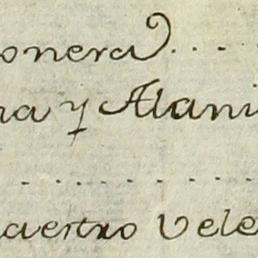 onera....
na y Alani
..........
aestro Vele